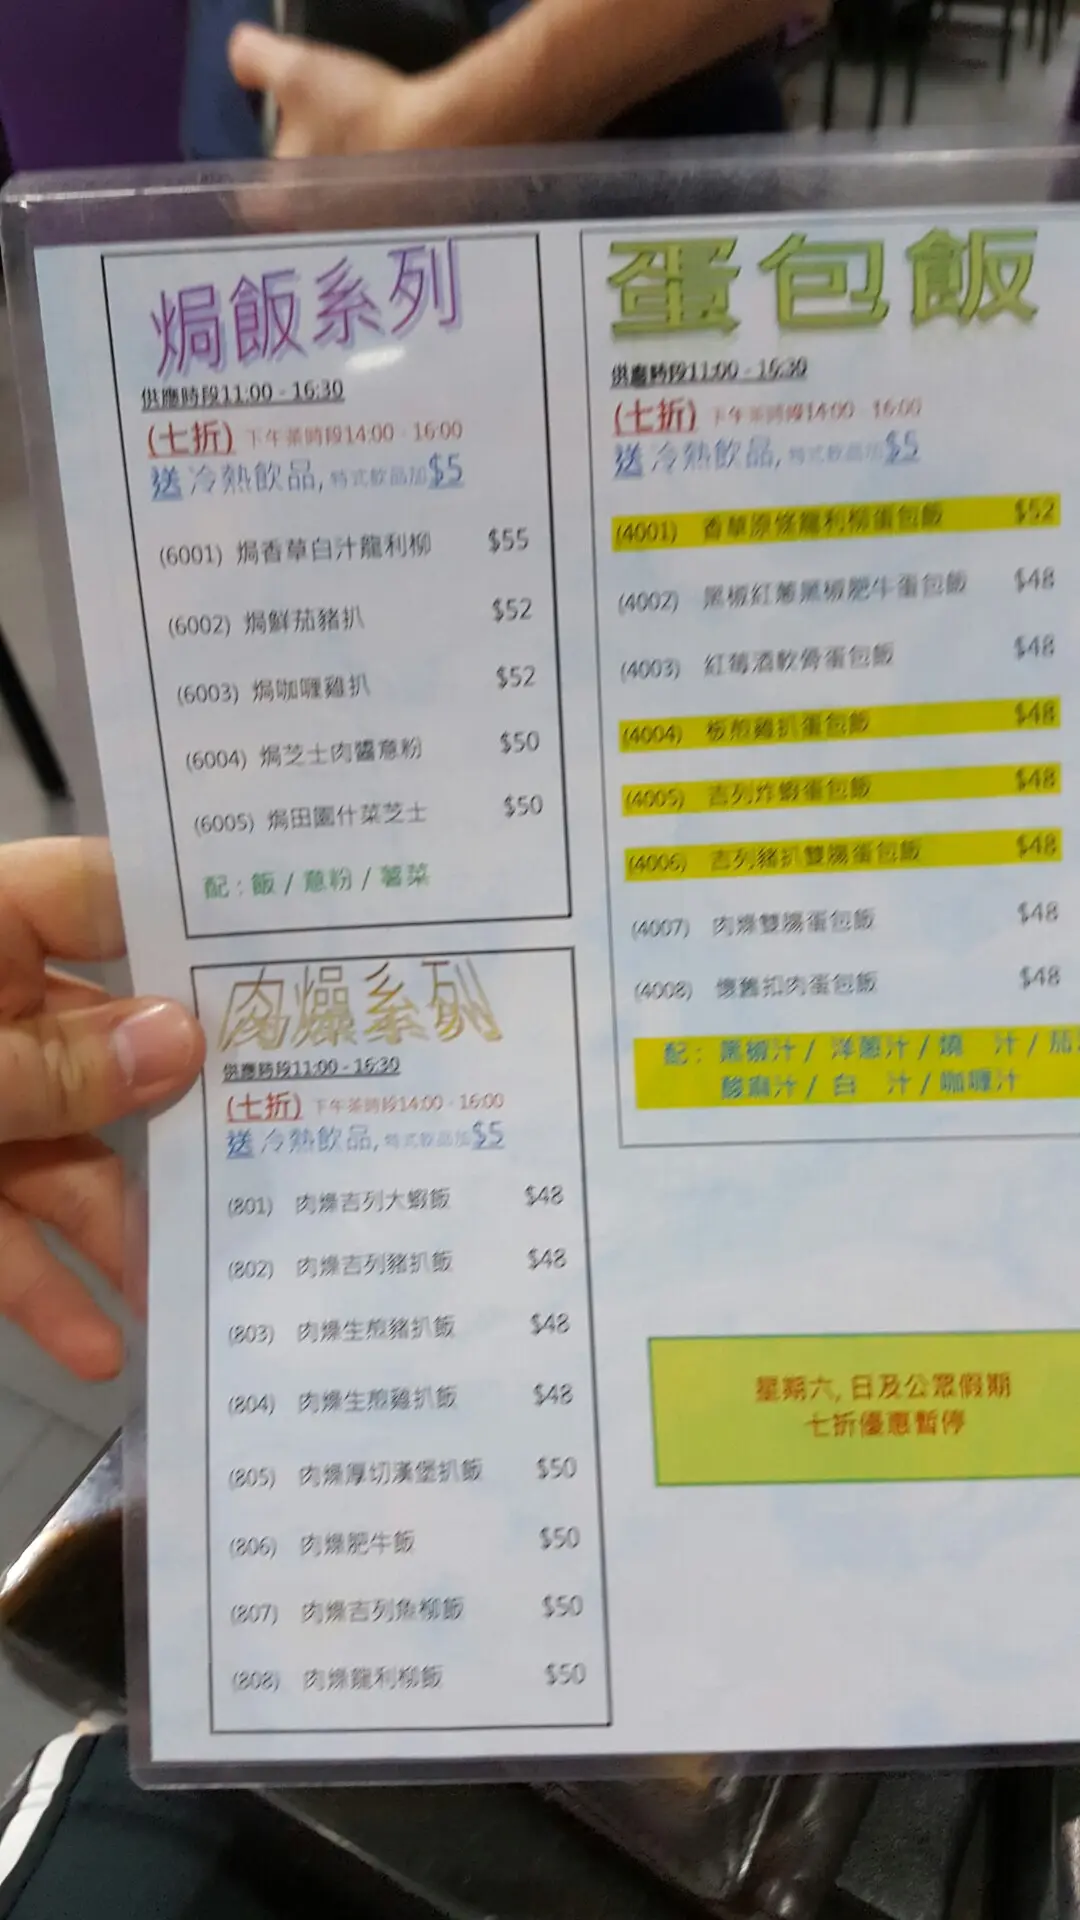 焗飯系列
供應時段11:00 - 16:30
(七折) 下午茶時段14:00 - 16:00
送 冷熱飲品, 特式飲品加$5
(6001) 焗香草白汁龍利柳 $55
(6002) 焗鮮茄豬扒 $52
(6003) 焗咖喱雞扒 $52
(6004) 焗芝士肉醬意粉 $50
(6005) 焗田園什菜芝士 $50
配 : 飯 / 意粉 / 薯菜
肉燥系列
供應時段11:00 - 16:30
(七折) 下午茶時段14:00 - 16:00
送 冷熱飲品, 特式飲品加$5
(801) 肉燥吉列大蝦飯 $48
(802) 肉燥吉列豬扒飯 $48
(803) 肉燥生煎豬扒飯 $48
(804) 肉燥生煎雞扒飯 $48
(805) 肉燥厚切漢堡扒飯 $50
(806) 肉燥肥牛飯 $50
(807) 肉燥吉列魚柳飯 $50
(808) 肉燥龍利柳飯 $50
蛋包飯
供應時段11:00 - 16:30
(七折) 下午茶時段14:00 - 16:00
送 冷熱飲品, 特式飲品加$5
(4001) 香草原條龍利柳蛋包飯 $52
(4002) 黑椒紅蔥黑椒肥牛蛋包飯 $48
(4003) 紅莓酒軟骨蛋包飯 $48
(4004) 板煎雞扒蛋包飯 $48
(4005) 吉列炸蝦蛋包飯 $48
(4006) 吉列豬扒雙腸蛋包飯 $48
(4007) 肉燥雙腸蛋包飯 $48
(4008) 懷舊扣肉蛋包飯 $48
配 : 黑椒汁 / 洋蔥汁 / 燒 汁 / 茄
酸麻汁 / 白 汁 / 咖喱汁
星期六, 日及公眾假期
七折優惠暫停